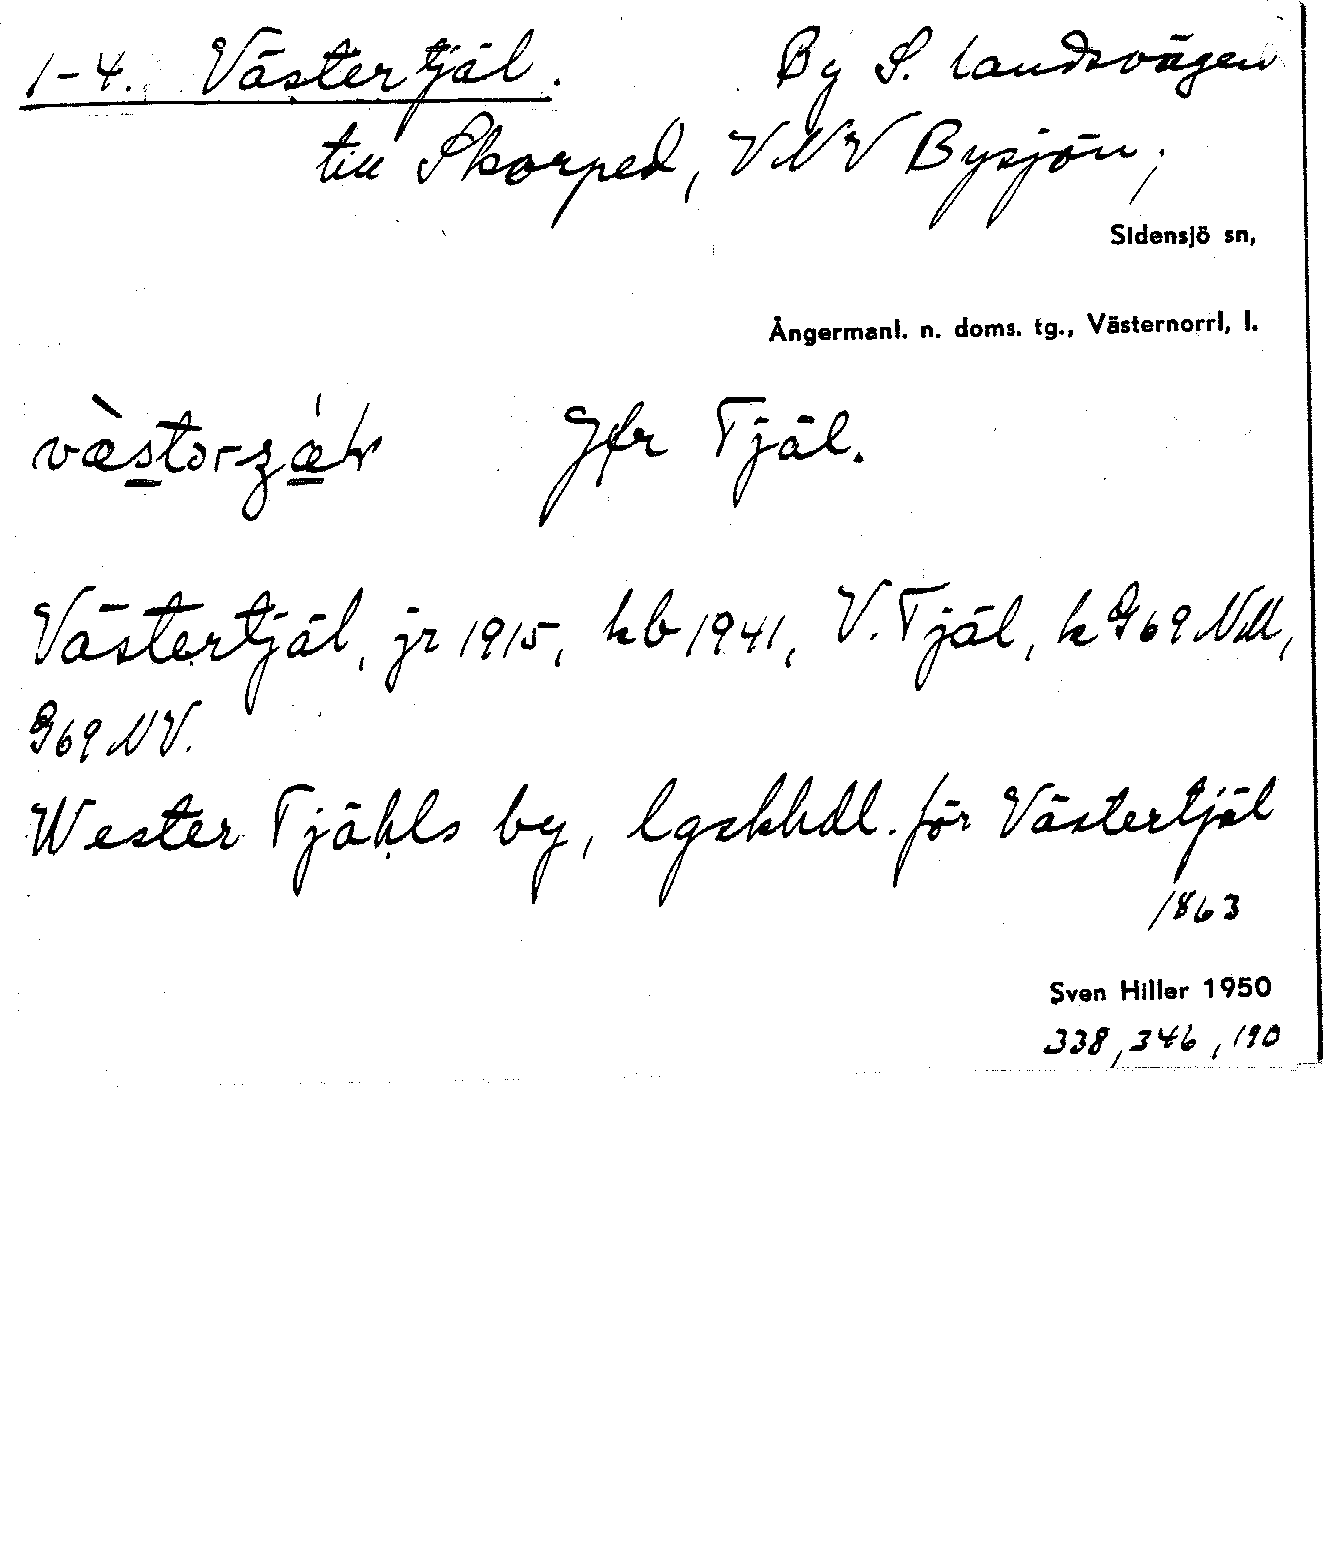 1-4. Västertjäl. By S. landsvägen
till Skorped, VNV Bysjön;
Sidensjö sn,
Ångermanl. n. doms. tg., Västernorrl. l.
Jfr Tjäl.
Västertjäl, jr 1915, kb 1941, V. Tjäl, k 969 NV,
969 NV.
Wester Tjähls by, lgskhdl. för Västertjäl
1863
Sven Hiller 1950
338, 346, 190